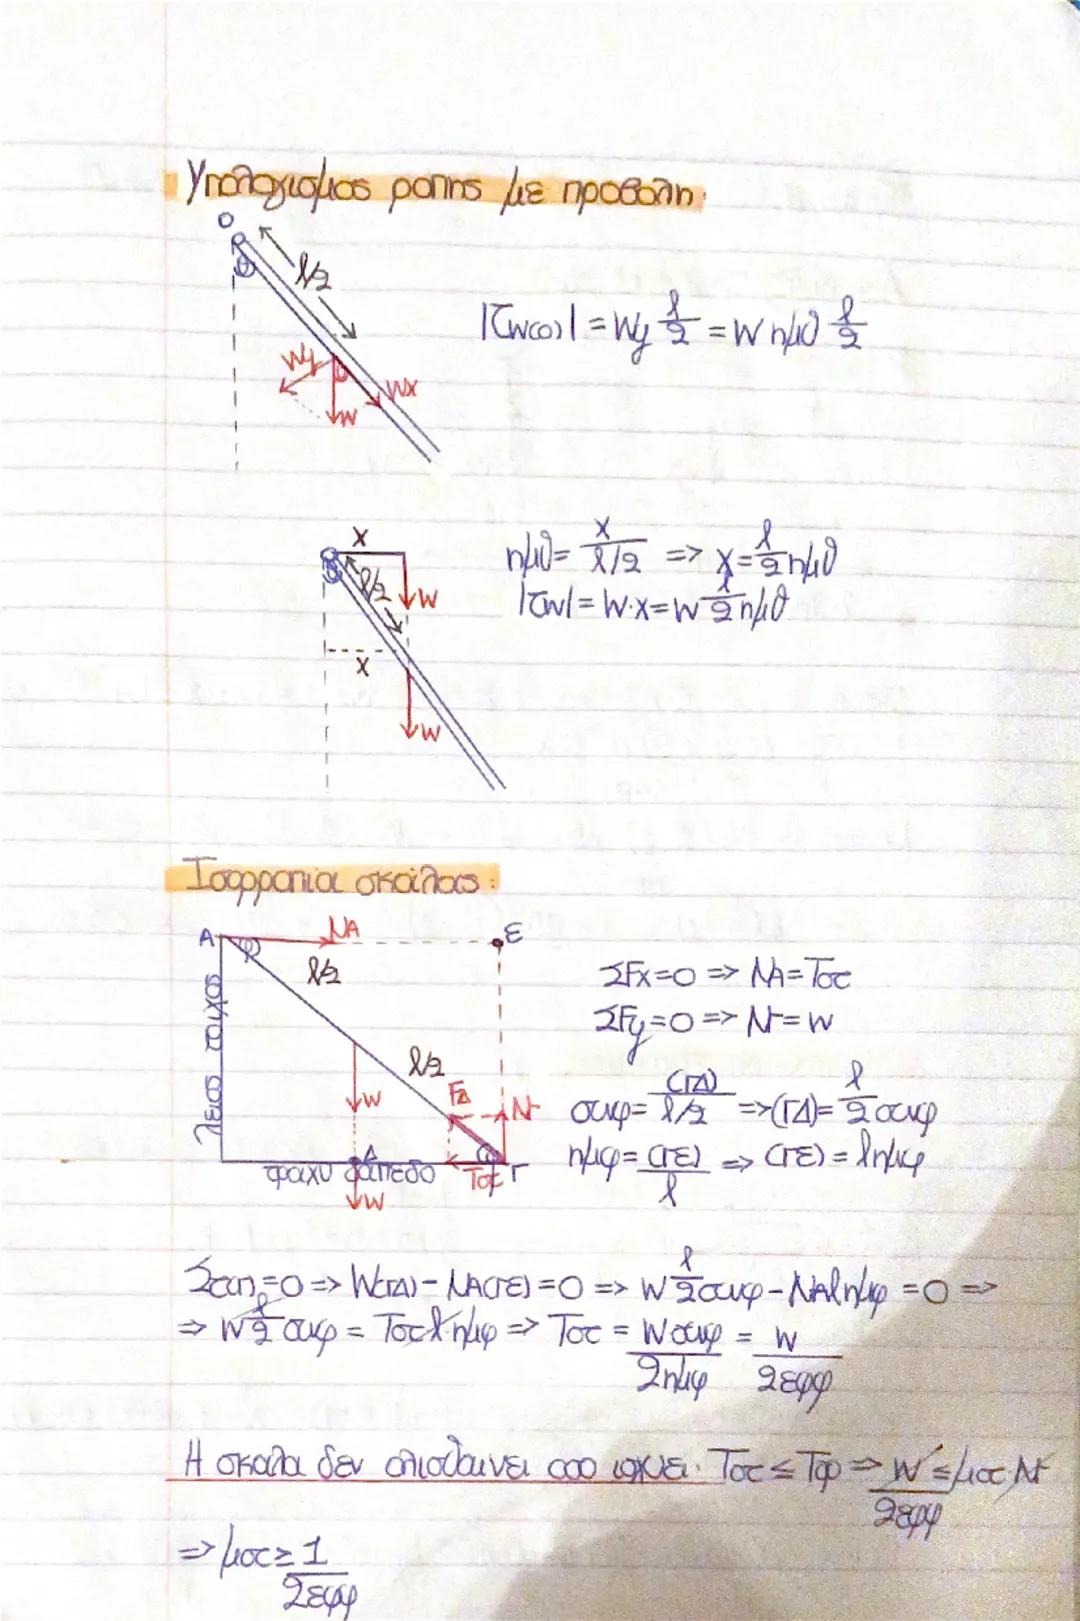 Υπολογισμος ροπης με προβολη:
O
θ
l/2
Wy
Wx
W
|τw(o)| = Wy l/2 = W ημθ l/2
x
θ
l/2
W
x
W
ημθ = x/(l/2) => x = l/2 ημθ
|τw| = W·x = W l/2 ημθ
Ισορροπια σκαλας:
A
φ
NA
E
l/2
λειος τοιχος
l/2
W
FΔ
N
Δ
φ
Γ
τραχυ δαπεδο
Τστ
W
ΣFx=0 => NA=Τστ
ΣFy=0 => N=W
συνφ = (ΓΔ)/(l/2) => (ΓΔ) = l/2 συνφ
ημφ = (ΓΕ)/l => (ΓΕ) = lημφ
Στ(Γ)=0 => W(ΓΔ) - NA(ΓΕ) = 0 => W l/2 συνφ - NAlημφ = 0 =>
=> W l/2 συνφ = Τστ l ημφ => Τστ = Wσυνφ/2ημφ = W/2εφφ
Η σκαλα δεν ολισθαινει οσο ισχυει: Τστ ≤ Τορ => W/2εφφ ≤ μστ N
=> μστ ≥ 1/2εφφ